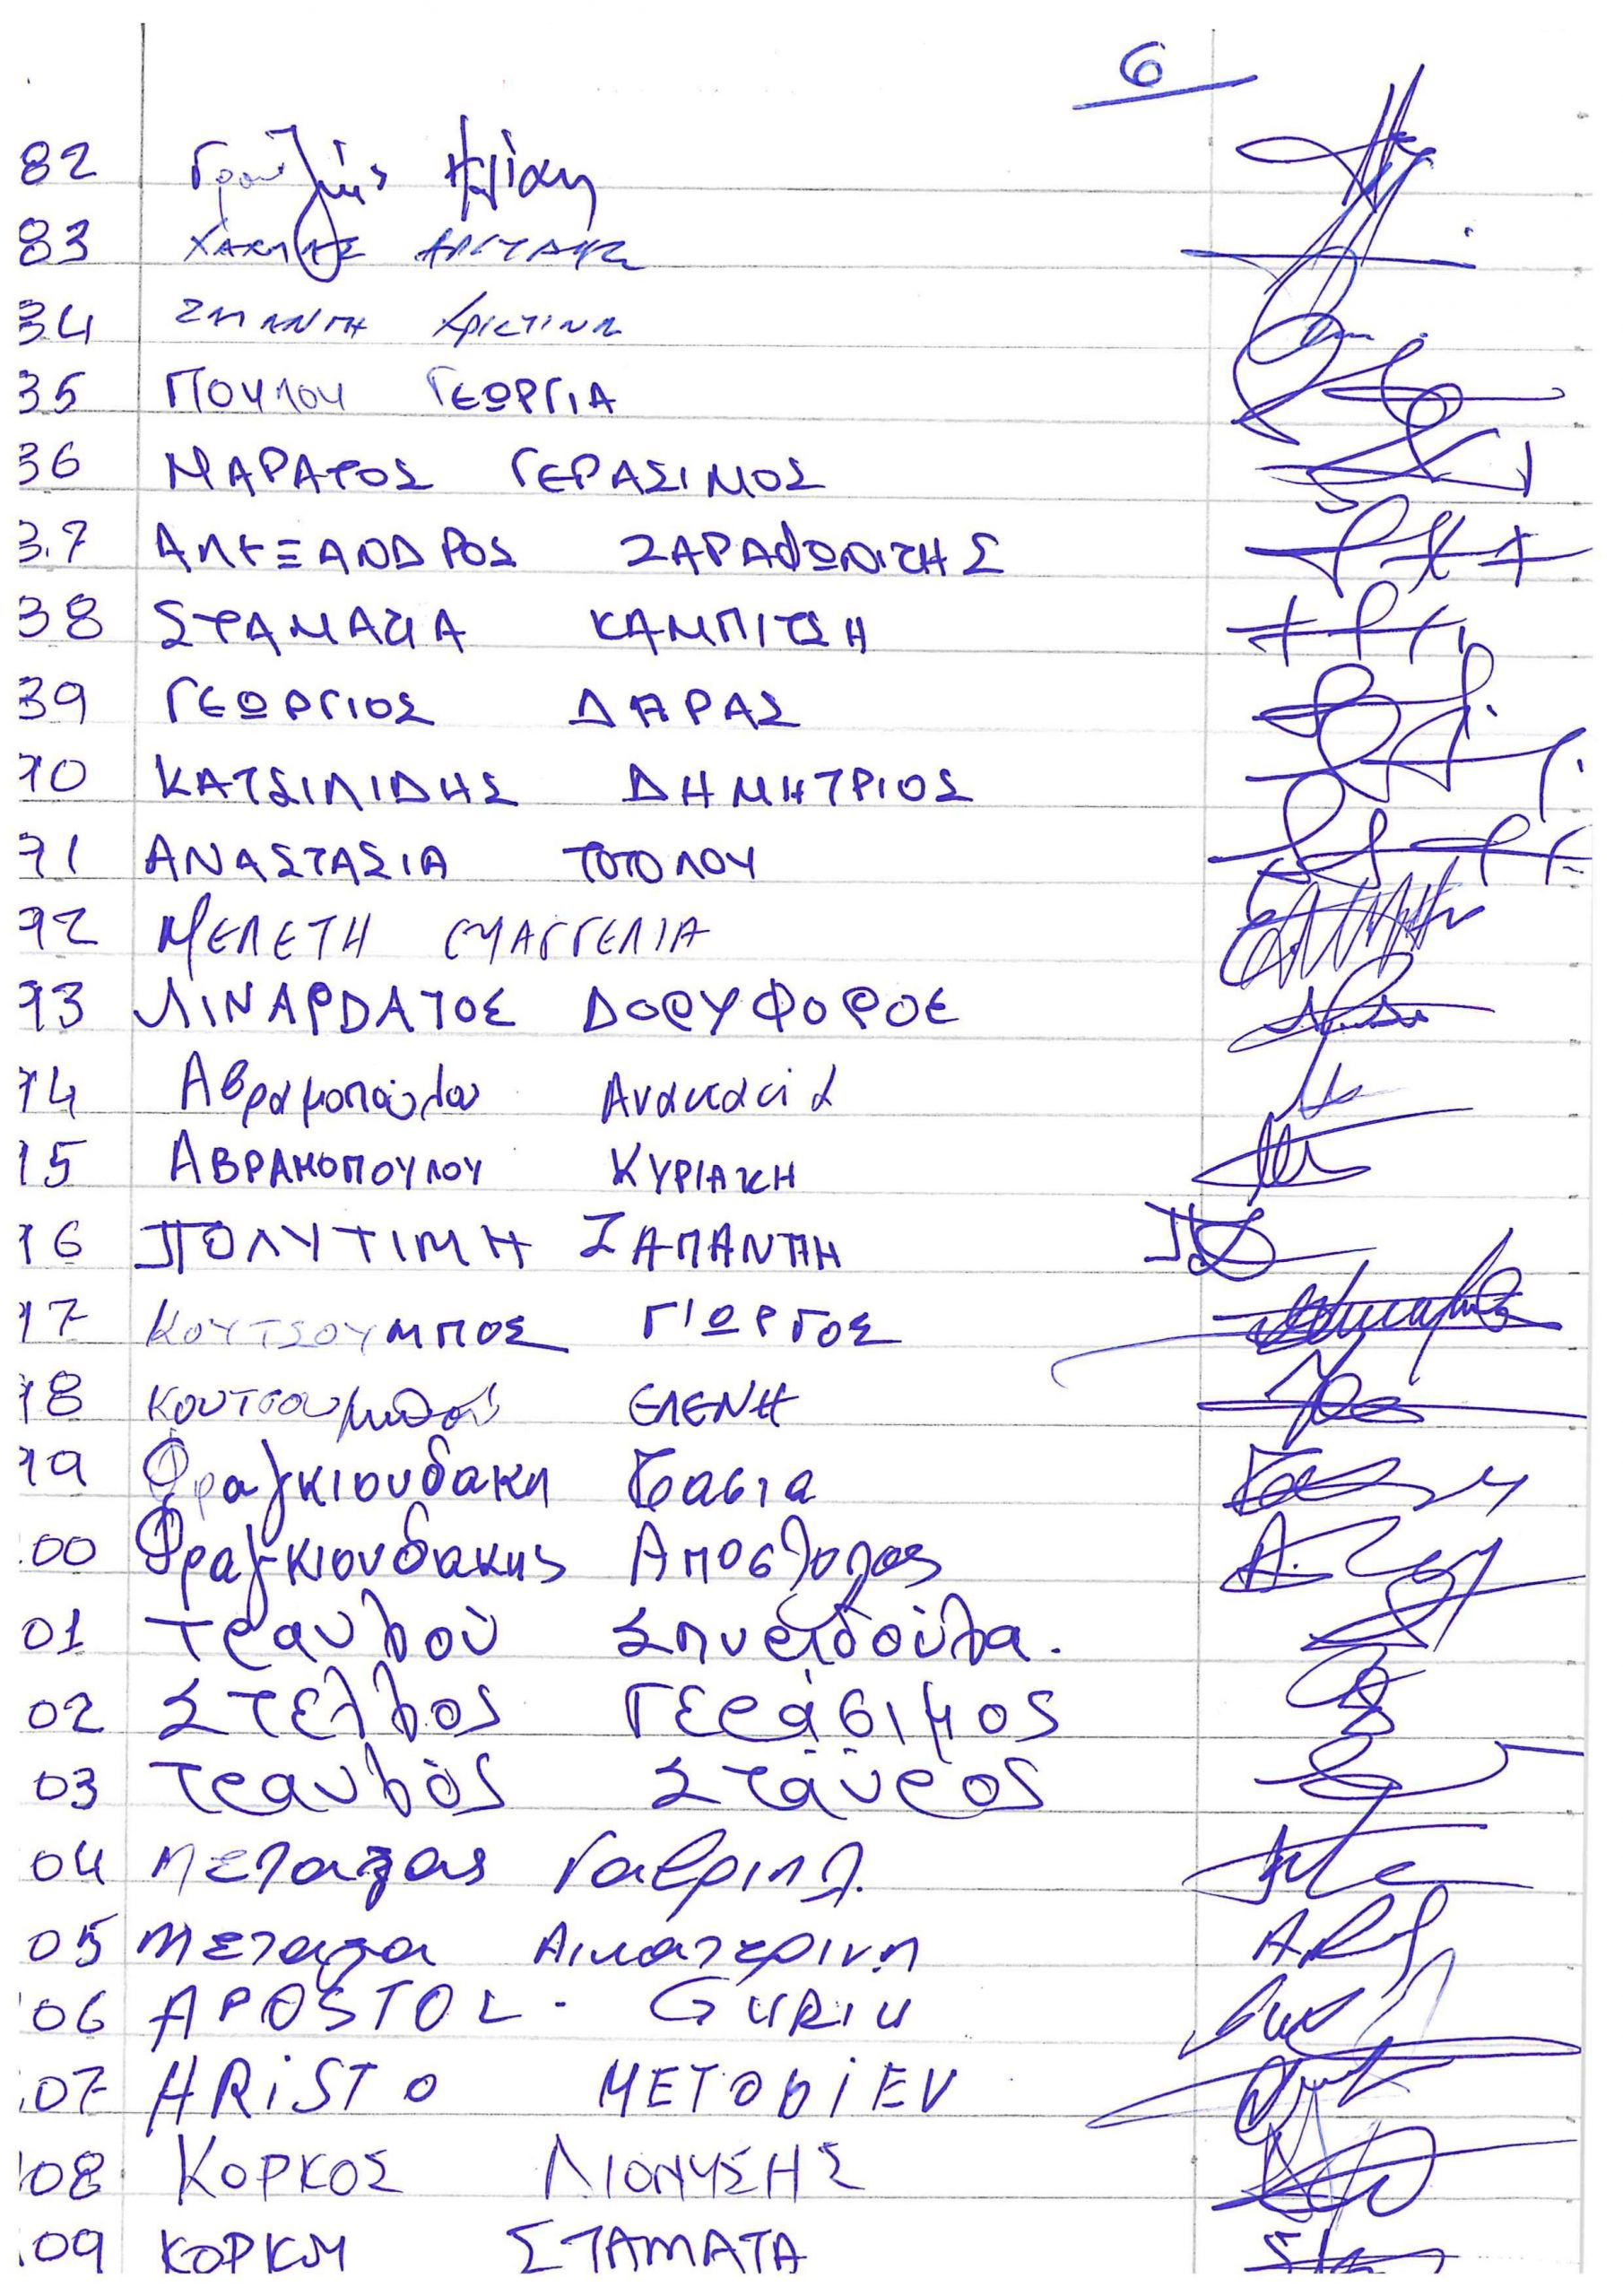 6
82
83
84 Χριστίνα
85 ΠΟΥΛΟΥ ΓΕΩΡΓΙΑ
86 ΜΑΡΑΤΟΣ ΓΕΡΑΣΙΜΟΣ
87 ΑΛΕΞΑΝΔΡΟΣ ΖΑΡΑΦΩΝΙΤΗΣ
88 ΣΤΑΜΑΤΙΑ ΚΑΜΠΙΤΣΗ
89 ΓΕΩΡΓΙΟΣ ΔΑΡΑΣ
90 ΚΑΤΣΙΛΙΔΗΣ ΔΗΜΗΤΡΙΟΣ
91 ΑΝΑΣΤΑΣΙΑ ΤΟΤΟΛΟΥ
92 ΜΕΛΕΤΗ ΕΥΑΓΓΕΛΙΑ
93 ΛΙΝΑΡΔΑΤΟΣ ΔΟΡΥΦΟΡΟΣ
94 Αβραμοπούλου Αναστασία
95 ΑΒΡΑΜΟΠΟΥΛΟΥ ΚΥΡΙΑΚΗ
96 ΠΟΛΥΤΙΜΗ ΖΑΠΑΝΤΗ
97 ΚΟΥΤΣΟΥΜΠΟΣ ΓΙΩΡΓΟΣ
98 Κουτσουμπού ΕΛΕΝΗ
99 Φραγκιουδακη Τασια
00 Φραγκιουδακης Αποστολος
01 Τραυλού Σπυριδούλα.
02 Στέλλος Γεράσιμος
03 Τραυλός Σταύρος
04 Μεταξας Γαβριηλ
05 Μεταξα Αικατερινη
106 APOSTOL - GURIU
107 HRiSTO METODiEV
108 ΚΟΡΚΟΣ ΔΙΟΝΥΣΗΣ
109 ΚΟΡΚΟΥ ΣΤΑΜΑΤΑ